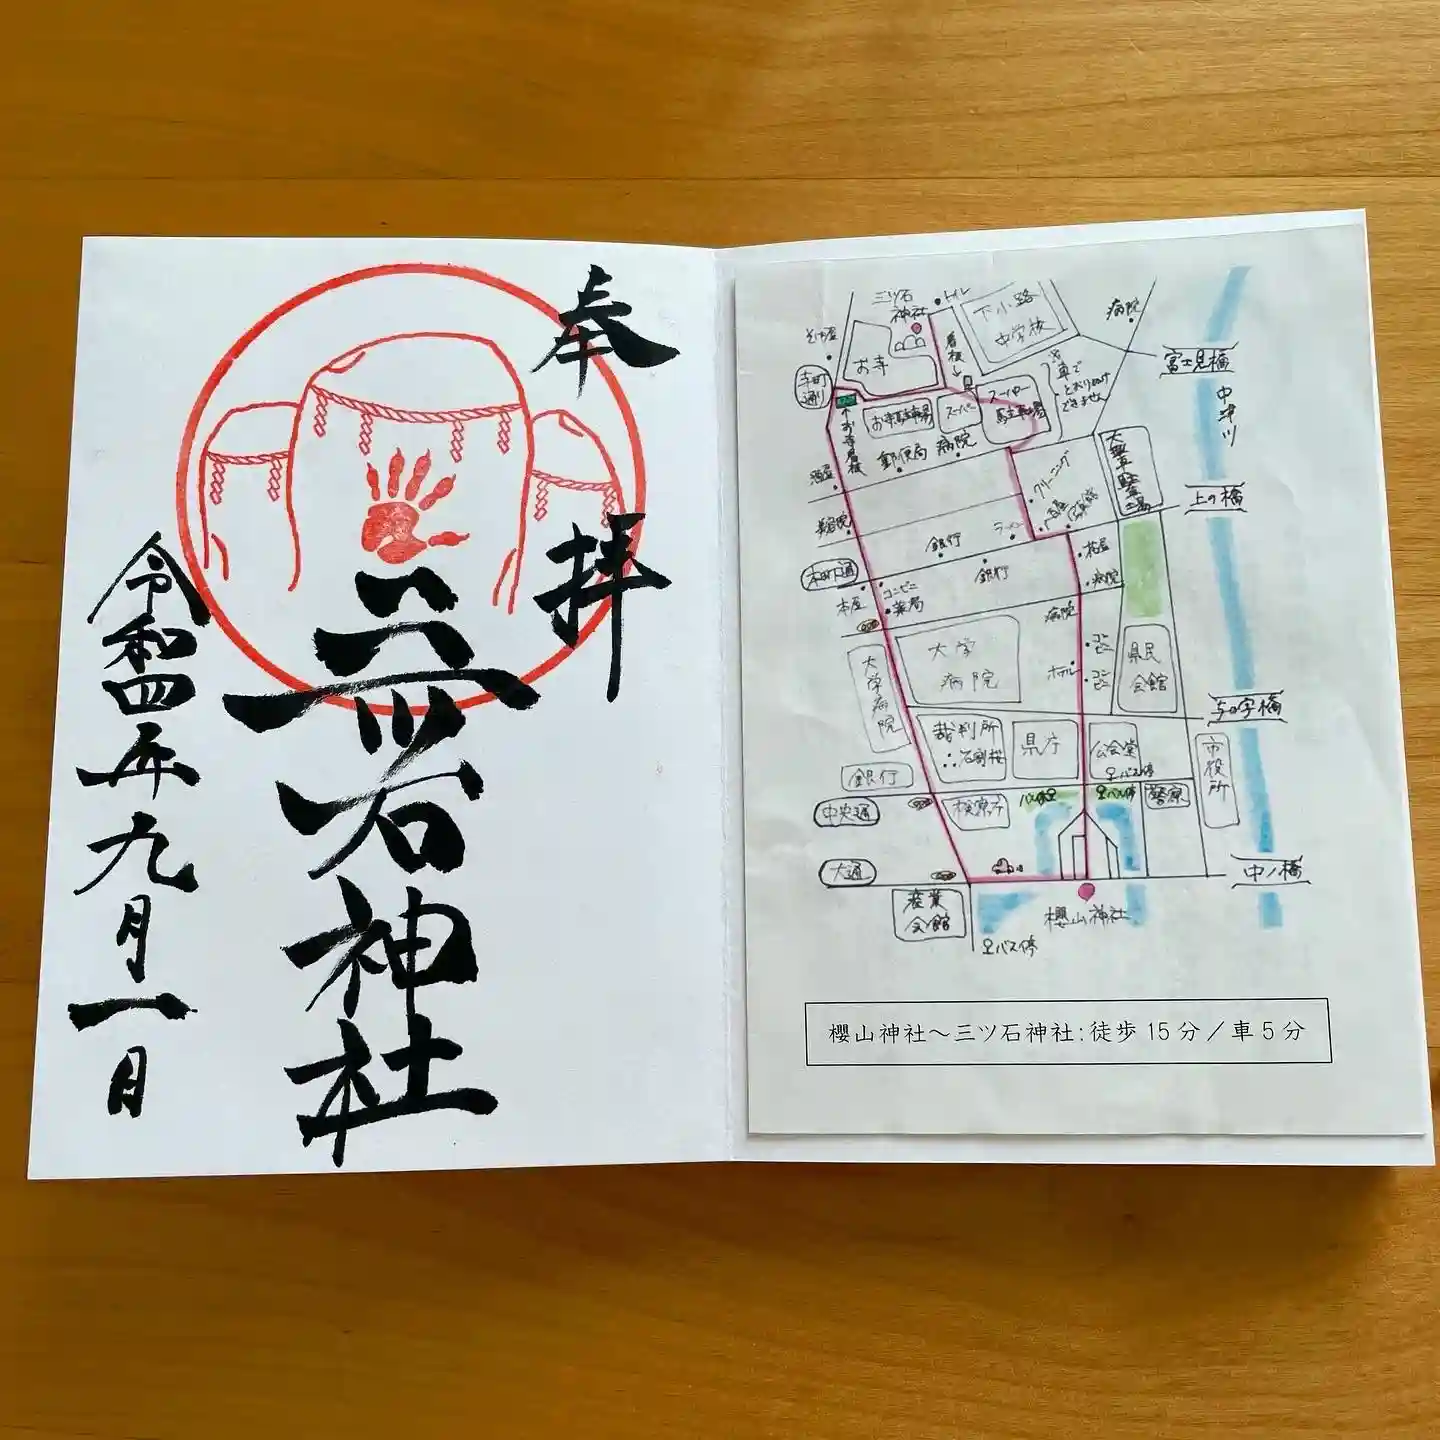 奉拝
三ツ石神社
令和四年九月一日
三ツ石
神社
トイレ
下小路
中学校
病院
そば屋
お寺
看板
寺町
通り
富士見橋
中津川
車で
とおりぬけ
できません
お寺駐車場
スーパー
スーパー
駐車場
お寺看板
郵便局
病院
酒屋
クリーニング
上の橋
美容院
ラーメン
銀行
銀行
花屋
病院
本町通
コンビニ
薬局
本屋
病院
大学
病院
大学病院
ホテル
コンビニ
コンビニ
県民
会館
与の字橋
裁判所
石割桜
県庁
公会堂
バス停
市役所
銀行
中央通
検察庁
バス停
バス停
警察
大通
中ノ橋
産業
会館
櫻山神社
バス停
櫻山神社～三ツ石神社:徒歩15分／車5分